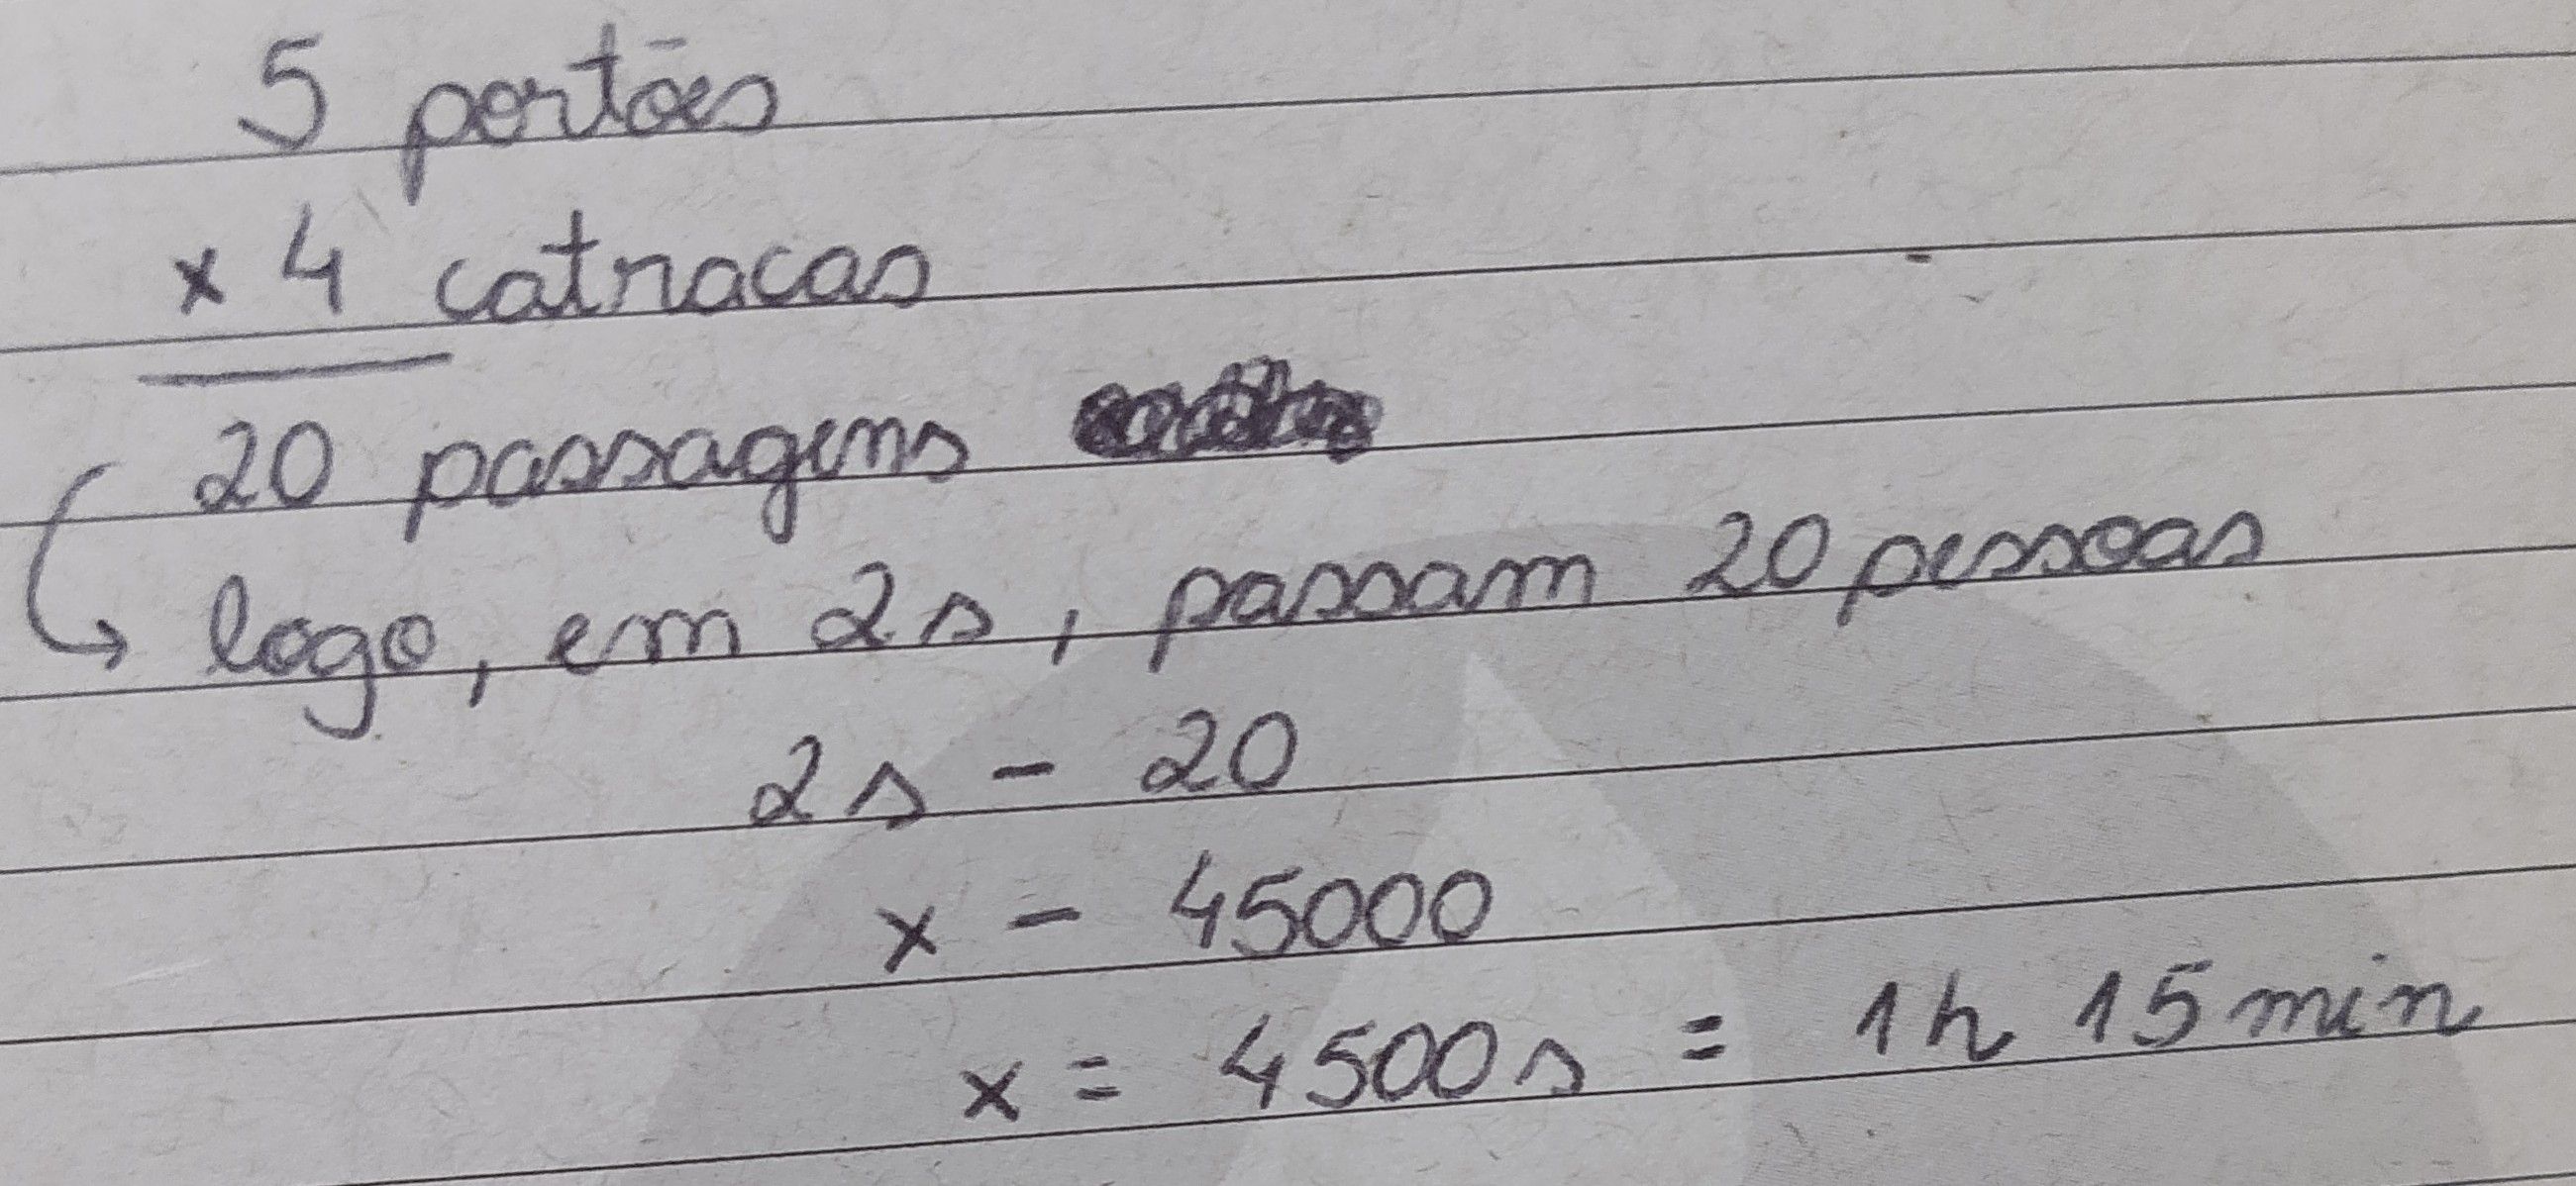 5 portões
x 4 catracas
20 passagens
logo, em 2s, passam 20 pessoas
2s - 20
x - 45000
x = 4500s = 1h 15min